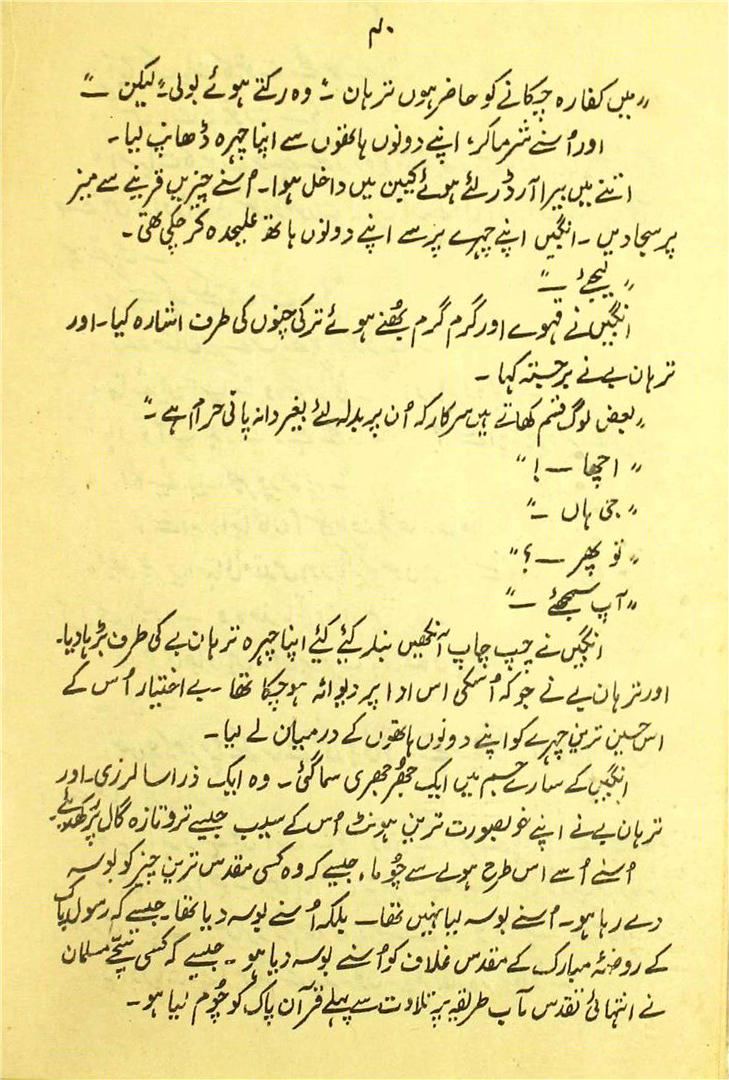 ۴۰
"میں کفارہ چکانے کو حاضر ہوں ترہان ۔" وہ رکتے ہوئے بولی۔ "لیکن ــ"
اور اُسنے شرما کر، اپنے دونوں ہاتھوں سے اپنا چہرہ ڈھانپ لیا۔
اتنے میں بیرا آرڈر لئے ہوئے کیبن میں داخل ہوا۔ اُسنے چیزیں قرینے سے میز
پر سجا دیں ۔ انگیں اپنے چہرے پر سے اپنے دونوں ہاتھ علیحدہ کر چکی تھی۔
"لیجئے ــ"
انگیں نے قہوے اور گرم گرم بھُنے ہوئے ترکی چنوں کی طرف اشارہ کیا۔ اور
ترہان بے نے برجستہ کہا ۔
"بعض لوگ قسم کھاتے ہیں سرکار کہ اُن پر بدلہ لئے بغیر دانہ پانی حرام ہے ۔"
"اچھا ــ !"
"جی ہاں ــ"
"تو پھر ــ ؟"
"آپ سمجھئے ــ"
انگیں نے چپ چاپ آنکھیں بند کیئے کیئے اپنا چہرہ ترہان بے کی طرف بڑہا دیا۔
اور ترہان بے نے جو کہ اُسکی اس ادا پر دیوانہ ہو چکا تھا ۔ بے اختیار اُس کے
اس حسین ترین چہرے کو اپنے دونوں ہاتھوں کے درمیان لے لیا۔
انگیں کے سارے جسم میں ایک جھُر جھری سما گئی۔ وہ ایک ذرا سا لرزی۔ اور
ترہان بے نے اپنے خوبصورت ترین ہونٹ اُس کے سیب جیسے تر و تازہ گال پر رکھدیئے۔
اُسنے اُسے اس طرح ہولے سے چُوما، جیسے کہ وہ کسی مقدس ترین چیز کو بوسہ
دے رہا ہو۔ اُسنے بوسہ لیا نہیں تھا۔ بلکہ اُسنے بوسہ دیا تھا۔ جیسے کہ رسولِ پاک
کے روضۂ مبارک کے مقدس غلاف کو اُسنے بوسہ دیا ہو ۔ جیسے کہ کسی سچّے مسلمان
نے انتہائی تقدس مآب طریقہ پر تلاوت سے پہلے قرآن پاک کو چُوم لیا ہو۔